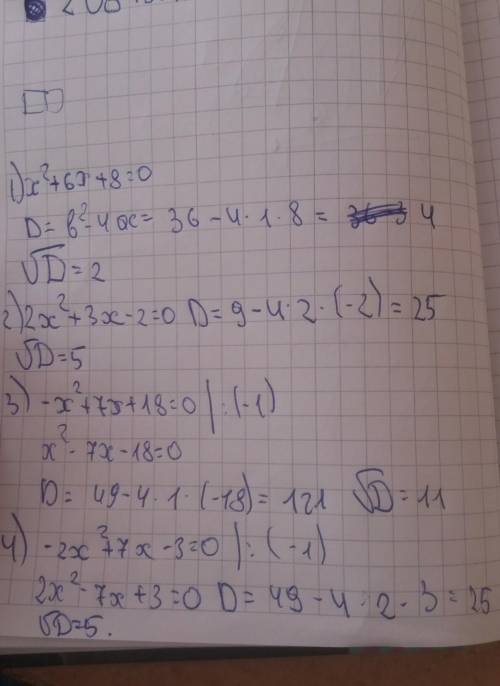 1) x²+6x+8=0
D= b²-4ac= 36-4·1·8= 4
√D=2
2) 2x²+3x-2=0 D=9-4·2·(-2)=25
√D=5
3) -x²+7x+18=0 |:(-1)
x²-7x-18=0
D= 49-4·1·(-18)= 121 √D=11
4) -2x²+7x-3=0 |:(-1)
2x²-7x+3=0 D=49-4·2·3=25
√D=5.